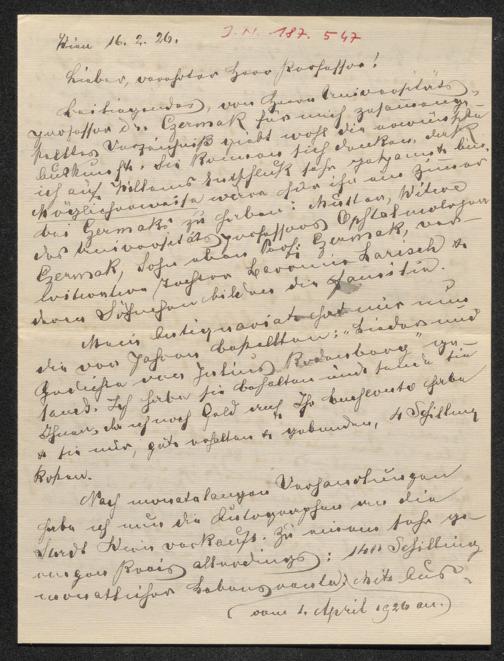 Wien 16. 2. 26.
J. N. 187. 547
Lieber, verehrter Herr Professor!
Beiliegendes, von Herrn Universitäts
professor Dr. Czermak für mich zusammenge-
stelltes Verzeichniß giebt wohl die erwünschte
Auskunft. Sie können sich denken, daß
ich auf Willems Entschluß sehr gespannt bin.
Möglicherweise wäre für ihn ein Zimmer
bei Czermaks zu haben: Mutter, Witwe
des Universitätsprofessors Ophtalmologen
Czermak, Sohn eben Prof. Czermak, ver-
witwete Tochter Baronin Larisch &
deren Söhnchen bilden die Familie.
Mein Antiquariat hat mir nun
die vor Jahren bestellten: "Lieder und
Gedichte von Julius Rodenberg" ge-
sandt. Ich habe sie behalten und sende sie
Ihnen, da ich noch Geld auf Ihr Buchkonto habe
& sie nur, gut erhalten & gebunden, 4 Schilling
kosten.
Nach monatelangen Verhandlungen
habe ich nun die Autographen an die
Stadt Wien verkauft. Zu einem sehr ge-
ringen Preis allerdings: Schilling
monatlicher Lebensrente mit Aus-
(vom 1. April 1926 an.)